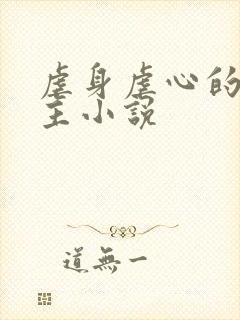 虐身虐心的
主小説
道無一